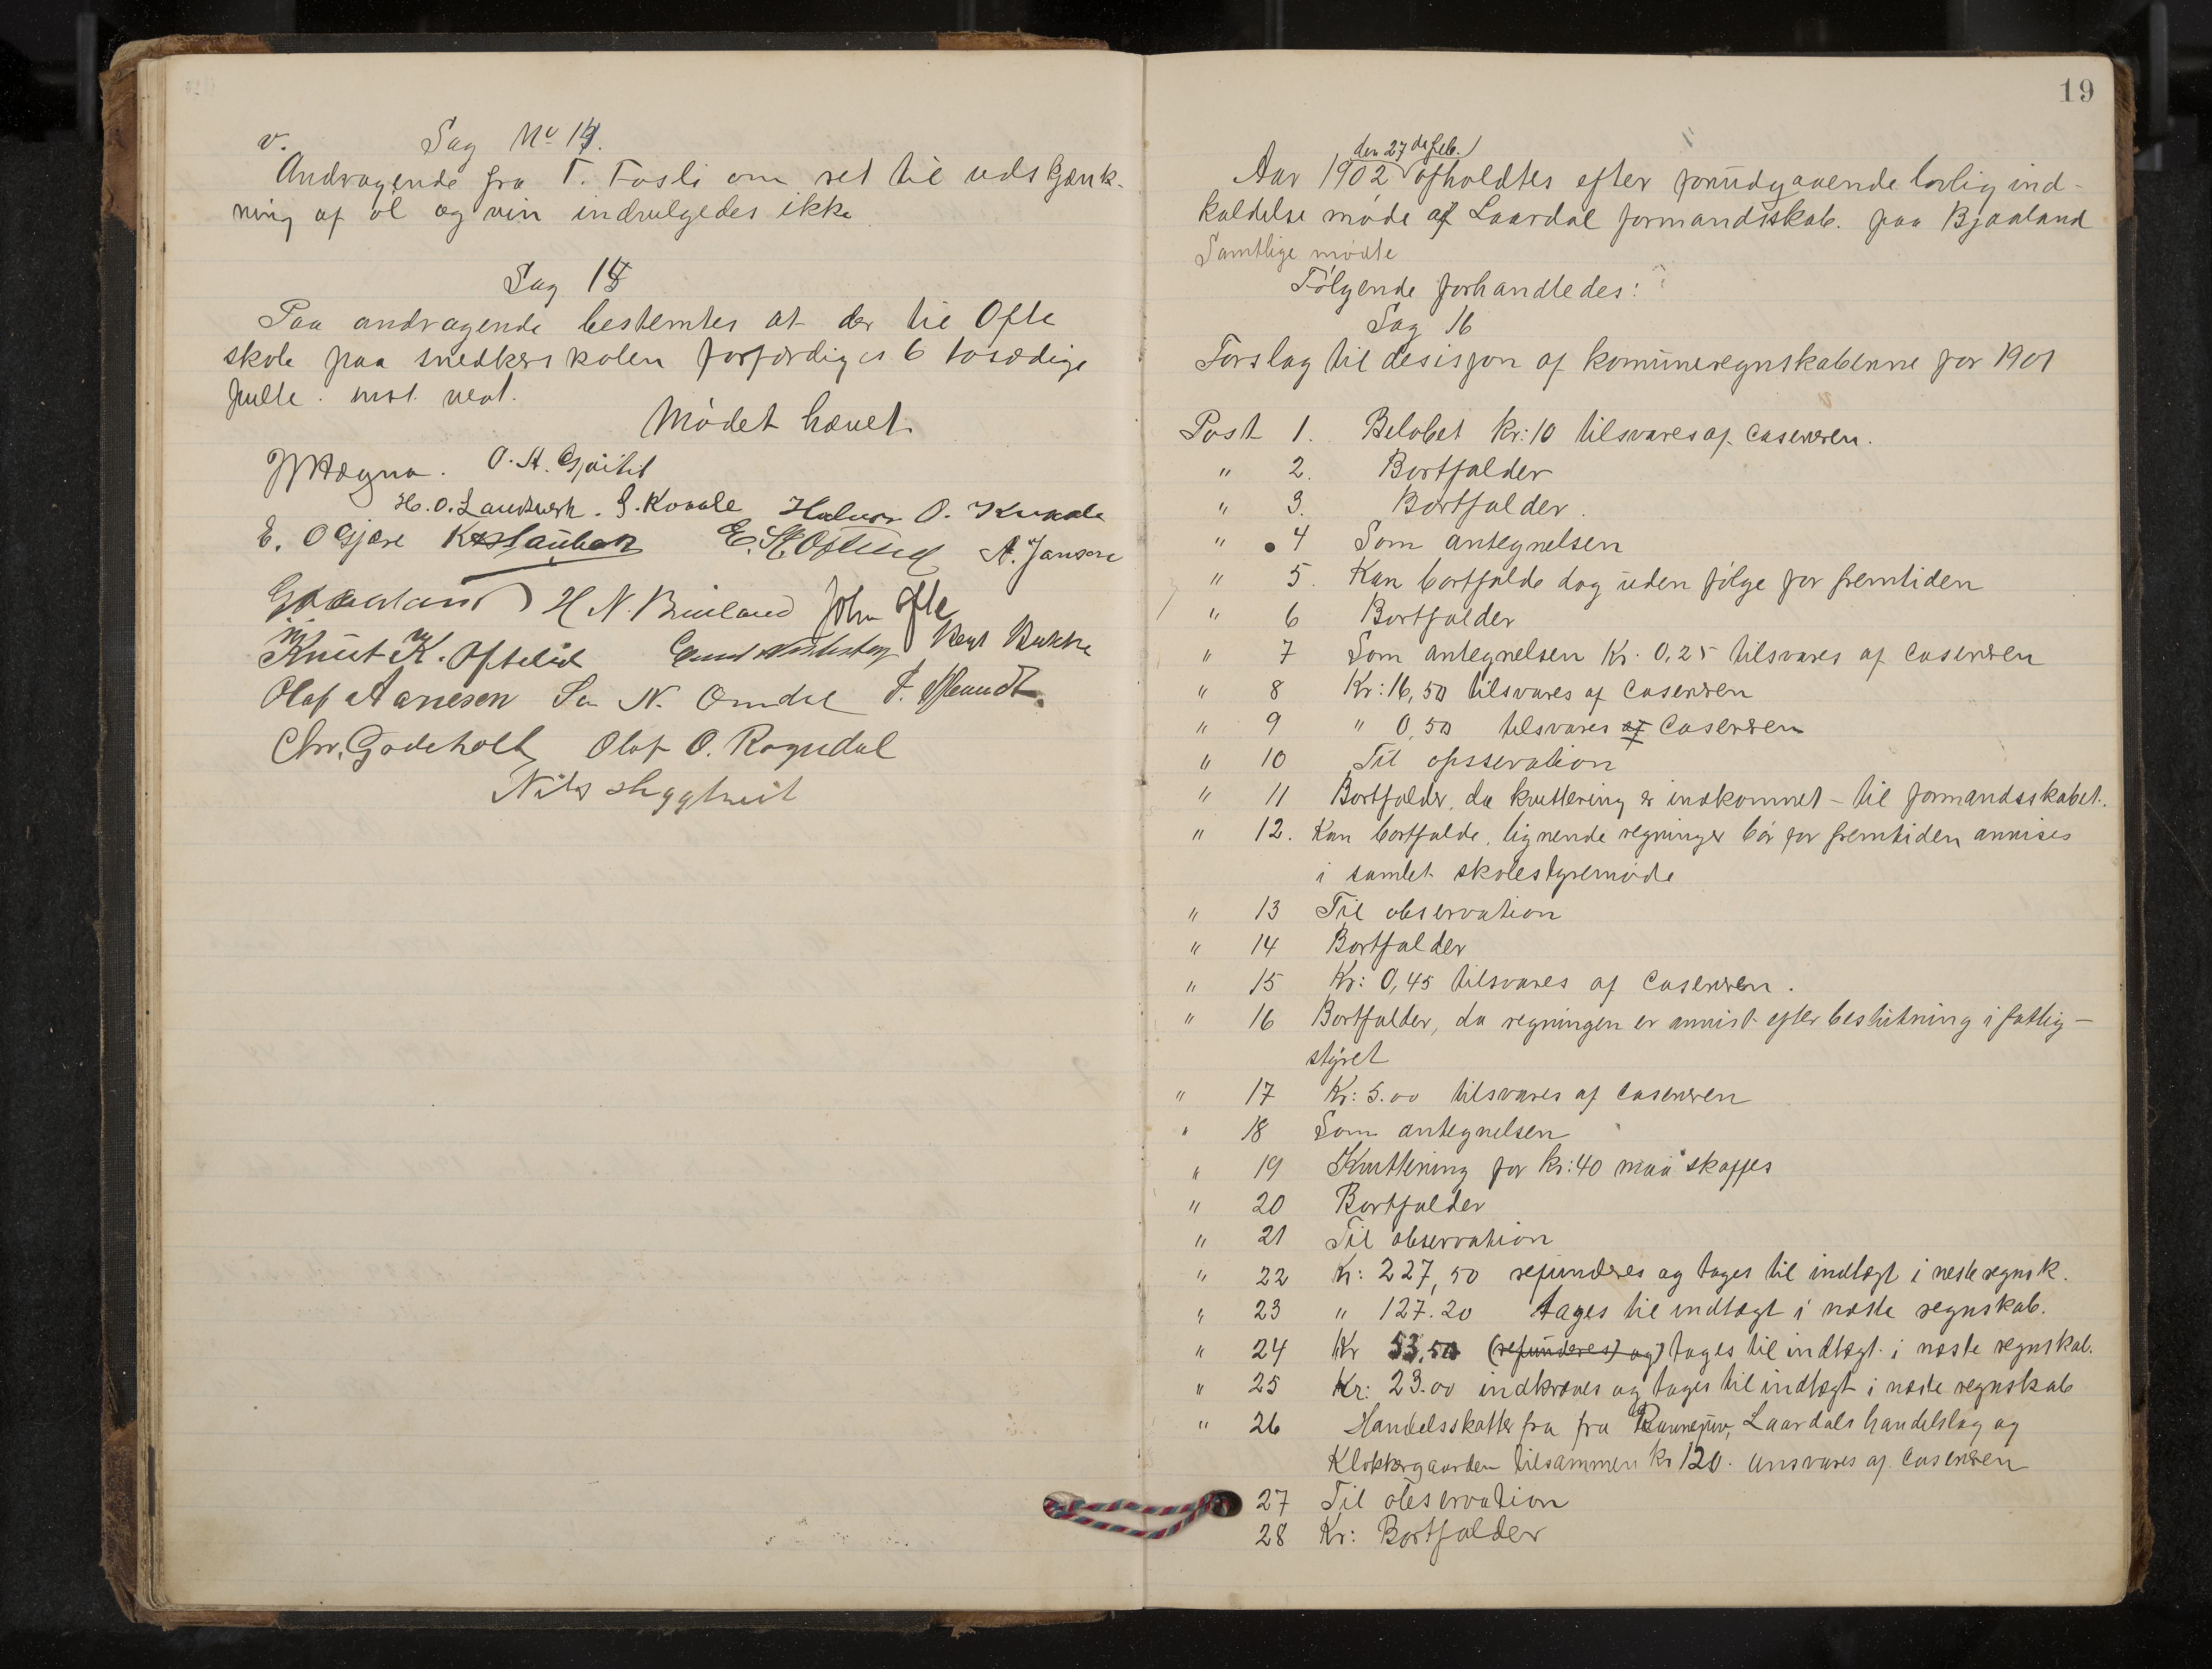 v. Sag No 14.
Andragende fra T. Fosli om ret til udskjænk-
ning af øl og vin indvilgedes ikke.
Sag 15
Paa andragende bestemtes at der til Ofte
skole paa snedkerskolen forfærdiges 6 tosædige
pulte. enst. vedt.
Mødet hævet.
O. H.
H. O. Landsverk. G. Kovale Halvor O.
E. O Gjøse E. H. Oftelid A. Janson
H N. John Ofte
Knut K. Oftelid Bent
Olaf Aanesen N. Omdal
Chr. Godtholt Olaf O. Rogndal
Nils
19
den 27de feb.
Aar 1902 afholdtes efter forudgaaende lovlig ind-
kaldelse møde af Laardal formandsskab. paa Bjaaland
Samtlige mødte
Følgende forhandledes:
Sag 16
Forslag til desisjon af komuneregnskaberne for 1901
Post 1. Beløbet Kr: 10 tilsvares af caserеren.
" 2. Bortfalder
" 3. Bortfalder.
" 4 Som antegnelsen
" 5. Kan bortfalde dog uden følge for fremtiden
" 6 Bortfalder
" 7 Som antegnelsen Kr. 0,25 tilsvares af casereren
" 8 Kr: 16,50 tilsvares af casereren
" 9 " 0,50 tilsvares af casereren
" 10 Til opsservation
" 11 Bortfalder, da kvittering er indkommet - til formandsskabet.
" 12. Kan bortfalde, lignende regninger bør for fremtiden anvises
i samlet skolestyremøde
" 13 Til observation
" 14 Bortfalder
" 15 Kr: 0,45 tilsvares af casereren.
" 16 Bortfalder, da regningen er anvist efter beslutning i fattig-
styret
" 17 Kr: 5.00 tilsvares af casereren
" 18 Som antegnelsen
" 19 Kvittering for kr: 40 maa skaffes
" 20 Bortfalder
" 21 Til observation
" 22 Kr: 227,50 refunderes og tages til indtægt i næste regnsk.
" 23 " 127.20 tages til indtægt i næste regnskab.
" 24 Kr 53,50 (refunderes) og) tages til indtægt i næste regnskab.
" 25 Kr: 23.00 indkræves og tages til indtægt i næste regnskab
" 26 Handelsskatter fra fra Ravnejuv, Laardals handelslag og
Klokkergaarden tilsammen kr 120. ansvares af casereren
27 Til observation
28 Kr: Bortfalder